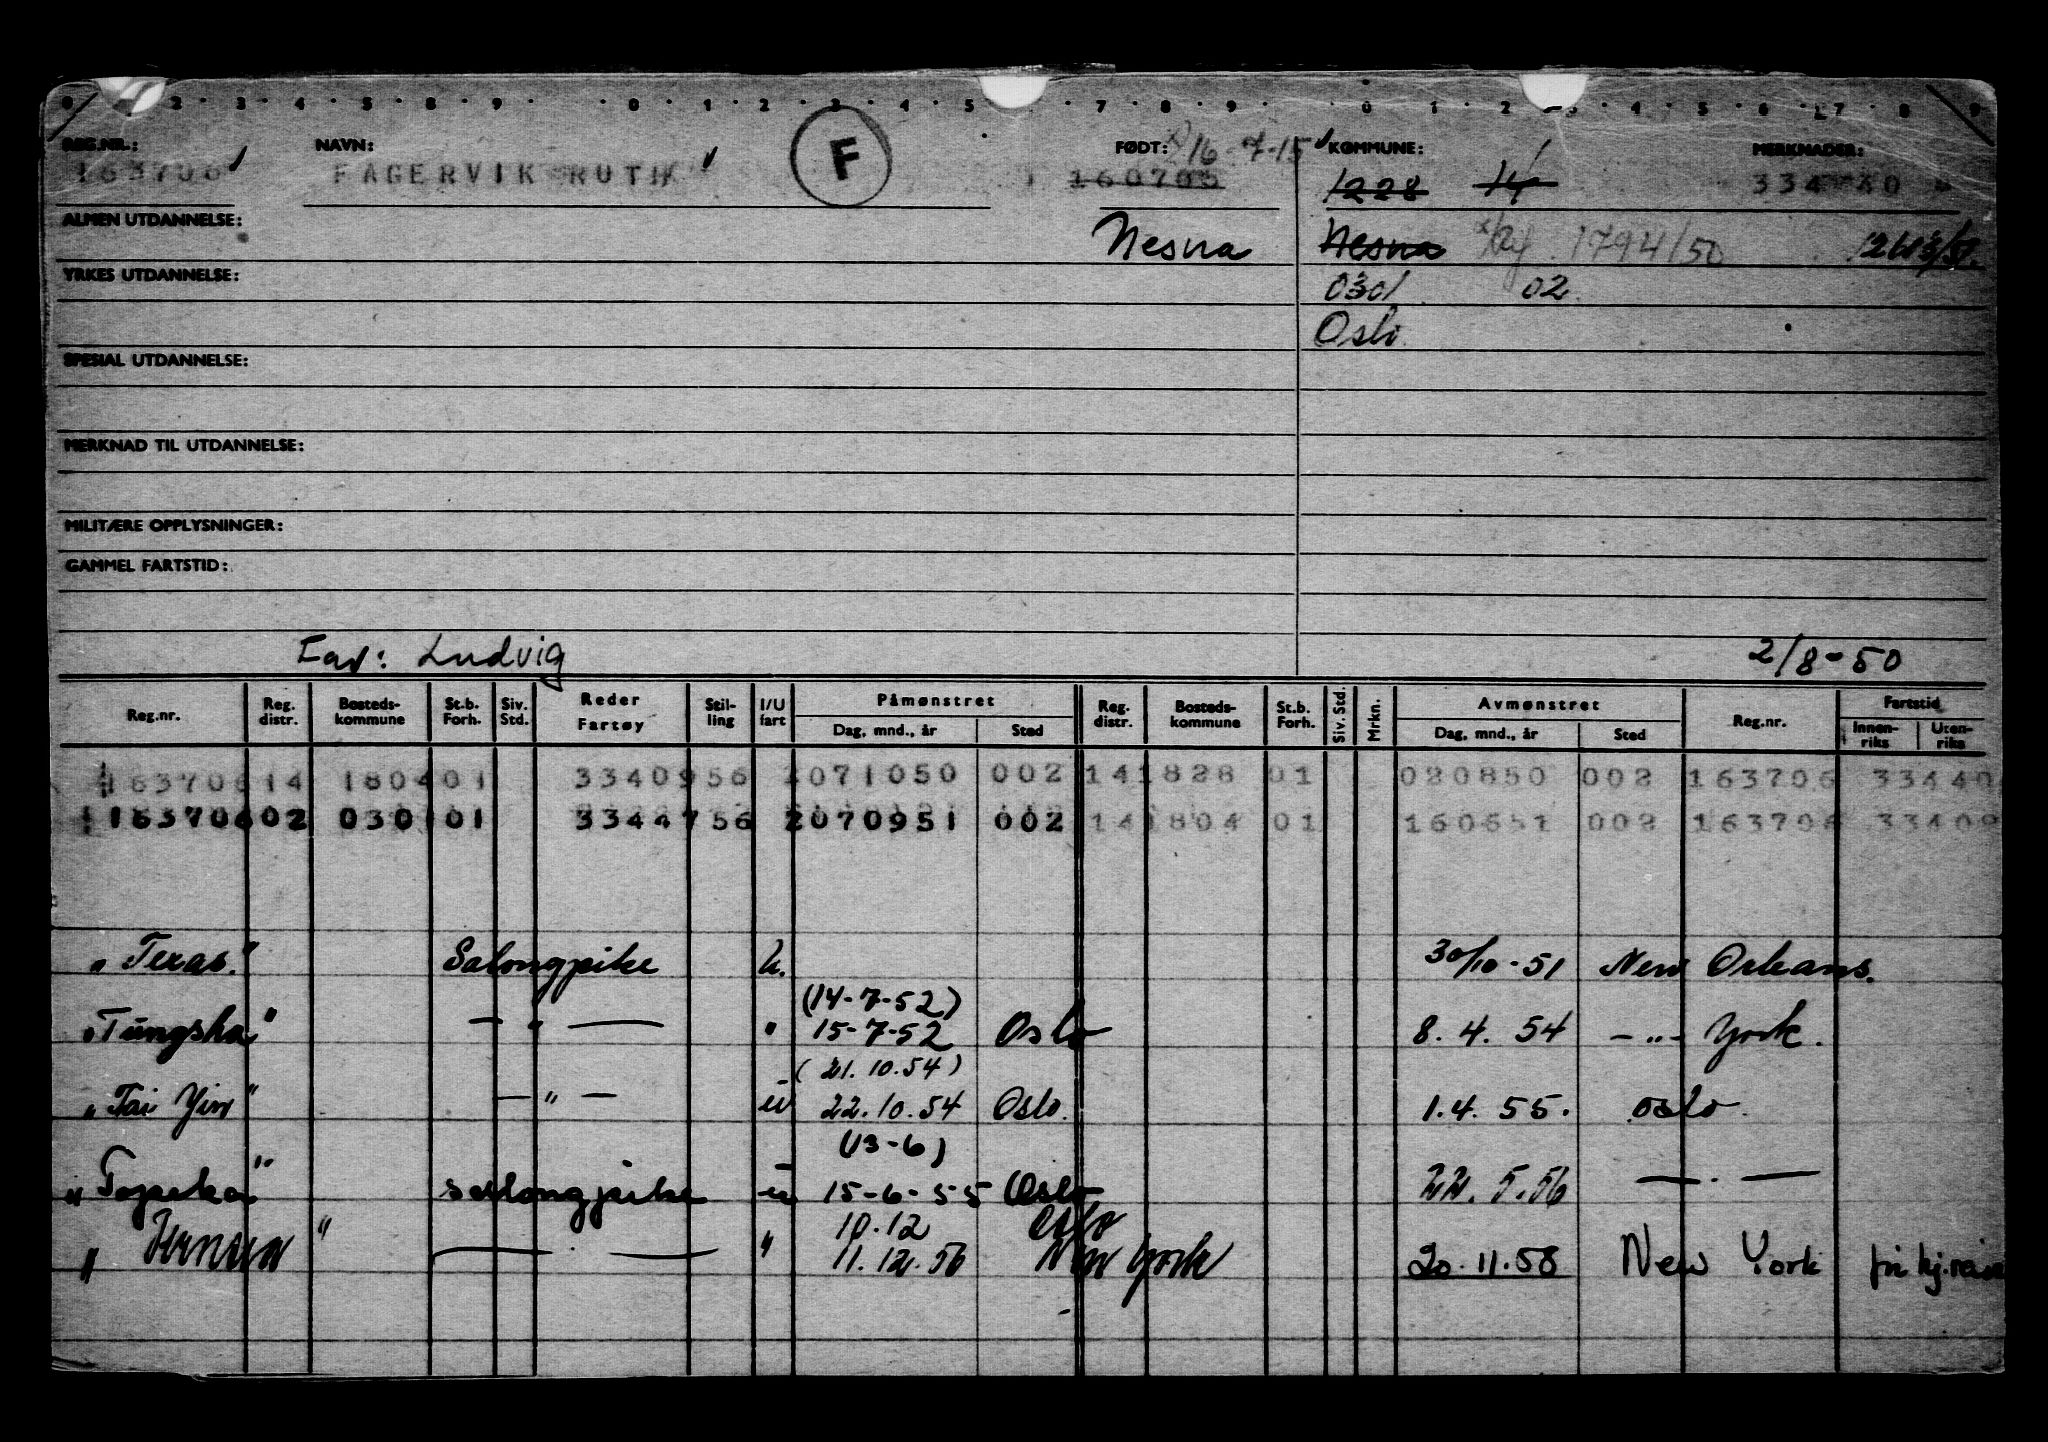 REG.NR.: NAVN: F FØDT: 16-7-15 KOMMUNE: MERKNADER:
163706 FAGERVIK RUTH 160705 1228 14 334
ALMEN UTDANNELSE: Nesna Nesna 1794/50
YRKES UTDANNELSE: 0301 02
Oslo
SPESIAL UTDANNELSE:
MERKNAD TIL UTDANNELSE:
MILITÆRE OPPLYSNINGER:
GAMMEL FARTSTID:
Far: Ludvig 2/8-50
Reg.nr. Reg. distr. Bosteds-kommune St.b. Forh. Siv. Std. Reder Fartøy Stil-ling I/U fart Påmønstret Dag, mnd., år Sted Reg. distr. Bosteds-kommune St.b. Forh. Siv. Std. Mrkn. Avmønstret Dag, mnd., år Sted Reg.nr. Fartstid Innen-riks Uten-riks
163706 14 1804 01 3340956 2071050 002 14 1828 01 020850 002 163706 33440
163706 02 0301 01 3344756 2070951 002 14 1804 01 160651 002 163706 33409
"Texas." Salongpike u. 30/10-51 New Orleans.
(14-7-52)
"Tungsha" — " — " 15-7-52 Oslo 8. 4. 54 — " — York.
(21.10.54)
"Tai Yin" — " — u 22.10.54 Oslo. 1.4. 55. Oslo.
(13-6)
"Topeka" salongpike u 15-6-55 Oslo 22. 5.56 — . —
10.12 Oslo
" " — . — " 11.12.56 New York 20.11.58 New York